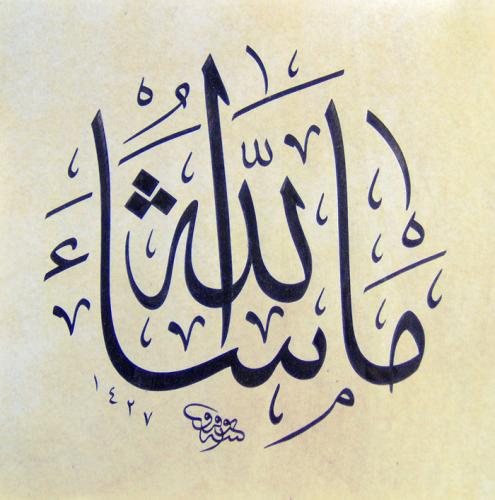 ما شاء الله
١٤٢٧